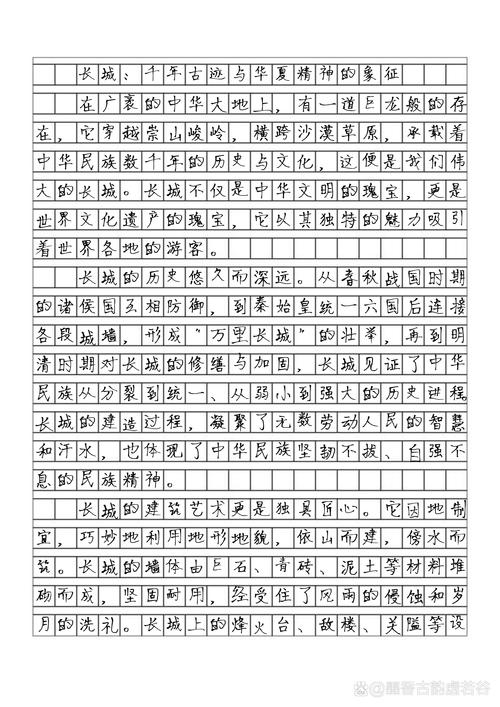 长城：千年古迹与华夏精神的象征
在广袤的中华大地上，有一道巨龙般的存
在，它穿越崇山峻岭，横跨沙漠草原，承载着
中华民族数千年的历史与文化，这便是我们伟
大的长城。长城不仅是中华文明的瑰宝，更是
世界文化遗产的瑰宝，它以其独特的魅力吸引
着世界各地的游客。
长城的历史悠久而深远。从春秋战国时期
的诸侯国互相防御，到秦始皇统一六国后连接
各段城墙，形成“万里长城”的壮举，再到明
清时期对长城的修缮与加固，长城见证了中华
民族从分裂到统一、从弱小到强大的历史进程。
长城的建造过程，凝聚了无数劳动人民的智慧
和汗水，也体现了中华民族坚韧不拔、自强不
息的民族精神。
长城的建筑艺术更是独具匠心。它因地制
宜，巧妙地利用地形地貌，依山而建，傍水而
筑。长城的墙体由巨石、青砖、泥土等材料堆
砌而成，坚固耐用，经受住了风雨的侵蚀和岁
月的洗礼。长城上的烽火台、敌楼、关隘等设
@墨香古韵虚若谷